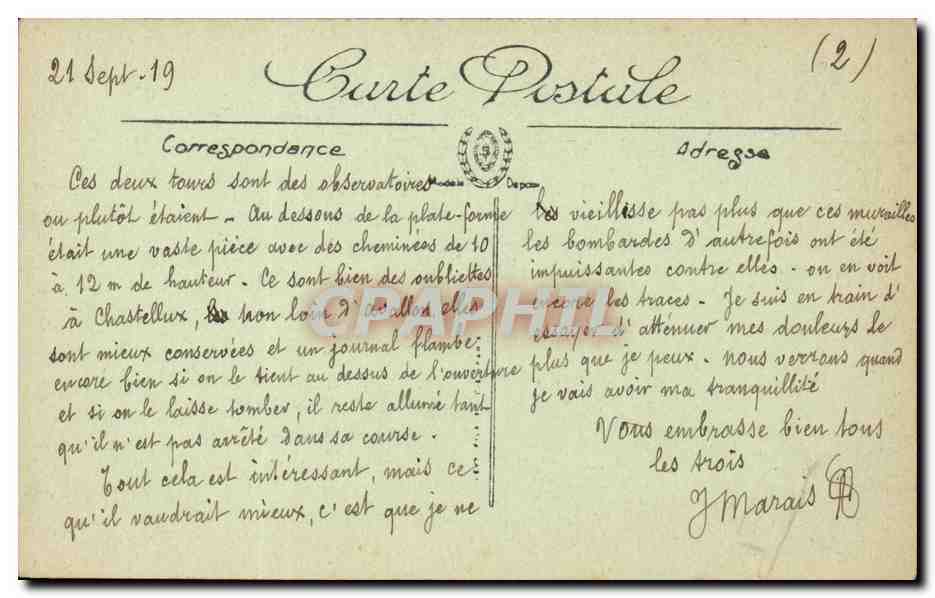 21 Sept-19
(2)
Carte Postale
Correspondance
Adresse
Ces deux tours sont des observatoires
ou plutôt étaient - Au dessous de la plate-forme
était une vaste pièce avec des cheminées de 10
à 12 m de hauteur - Ce sont bien des oubliettes
à Chastellux, non loin d'avallon, elles
sont mieux conservées et un journal flambe
encore bien si on le tient au dessus de l'ouverture
et si on le laisse tomber, il reste allumé tant
qu'il n'est pas arrêté dans sa course.
Tout cela est intéressant, mais ce
qu'il vaudrait mieux, c'est que je ne
vieillisse pas plus que ces murailles
les bombardes d'autrefois ont été
impuissantes contre elles - on en voit
encore les traces - Je suis en train d'
essayer d'atténuer mes douleurs le
plus que je peux - nous verrons quand
je vais avoir ma tranquillité
Vous embrasse bien tous
les trois
J Marais
CPAPHIL